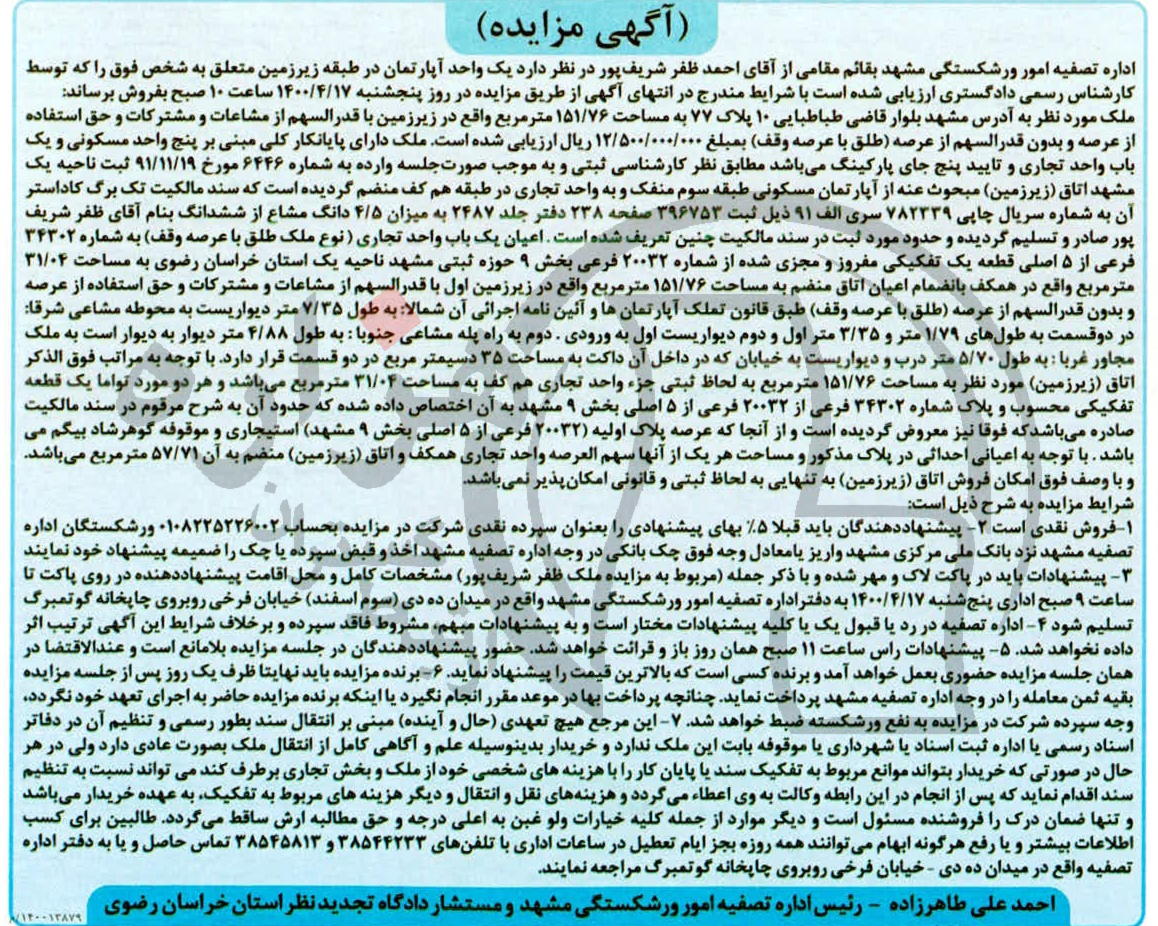 (آگهی مزایده)
اداره تصفیه امور ورشکستگی مشهد بقائم مقامی از آقای احمد ظفر شریف‌پور در نظر دارد یک واحد آپارتمان در طبقه زیرزمین متعلق به شخص فوق را که توسط
کارشناس رسمی دادگستری ارزیابی شده است با شرایط مندرج در انتهای آگهی از طریق مزایده در روز پنجشنبه ۱۴۰۰/۴/۱۷ ساعت ۱۰ صبح بفروش برساند:
ملک مورد نظر به آدرس مشهد بلوار قاضی طباطبایی ۱۰ پلاک ۷۷ به مساحت ۱۵۱/۷۶ مترمربع واقع در زیرزمین با قدرالسهم از مشاعات و مشترکات و حق استفاده
از عرصه و بدون قدرالسهم از عرصه (طلق با عرصه وقف) بمبلغ ۱۲/۵۰۰/۰۰۰/۰۰۰ ریال ارزیابی شده است. ملک دارای پایانکار کلی مبنی بر پنج واحد مسکونی و یک
باب واحد تجاری و تایید پنج جای پارکینگ می‌باشد مطابق نظر کارشناسی ثبتی و به موجب صورت‌جلسه وارده به شماره ۶۴۴۶ مورخ ۹۱/۱۱/۱۹ ثبت ناحیه یک
مشهد اتاق (زیرزمین) مبحوث عنه از آپارتمان مسکونی طبقه سوم منفک و به واحد تجاری در طبقه هم کف منضم گردیده است که سند مالکیت تک برگ کاداستر
آن به شماره سریال چاپی ۷۸۲۳۳۹ سری الف ۹۱ ذیل ثبت ۳۹۶۷۵۳ صفحه ۲۳۸ دفتر جلد ۲۴۸۷ به میزان ۴/۵ دانگ مشاع از ششدانگ بنام آقای ظفر شریف
پور صادر و تسلیم گردیده و حدود مورد ثبت در سند مالکیت چنین تعریف شده است . اعیان یک باب واحد تجاری ( نوع ملک طلق با عرصه وقف) به شماره ۳۴۳۰۲
فرعی از ۵ اصلی قطعه یک تفکیکی مفروز و مجزی شده از شماره ۲۰۰۳۲ فرعی بخش ۹ حوزه ثبتی مشهد ناحیه یک استان خراسان رضوی به مساحت ۳۱/۰۴
مترمربع واقع در همکف بانضمام اعیان اتاق منضم به مساحت ۱۵۱/۷۶ مترمربع واقع در زیرزمین اول با قدرالسهم از مشاعات و مشترکات و حق استفاده از عرصه
و بدون قدرالسهم از عرصه (طلق با عرصه وقف) طبق قانون تملک آپارتمان ها و آئین نامه اجرائی آن شمالا: به طول ۷/۳۵ متر دیواریست به محوطه مشاعی شرقا:
در دوقسمت به طول‌های ۱/۷۹ متر و ۳/۳۵ متر اول و دوم دیواریست اول به ورودی . دوم به راه پله مشاعی جنوبا : به طول ۴/۸۸ متر دیوار به دیوار است به ملک
مجاور غربا : به طول ۵/۷۰ متر درب و دیواریست به خیابان که در داخل آن داکت به مساحت ۳۵ دسیمتر مربع در دو قسمت قرار دارد. با توجه به مراتب فوق الذکر
اتاق (زیرزمین) مورد نظر به مساحت ۱۵۱/۷۶ مترمربع به لحاظ ثبتی جزء واحد تجاری هم کف به مساحت ۳۱/۰۴ مترمربع می‌باشد و هر دو مورد تواما یک قطعه
تفکیکی محسوب و پلاک شماره ۳۴۳۰۲ فرعی از ۲۰۰۳۲ فرعی از ۵ اصلی بخش ۹ مشهد به آن اختصاص داده شده که حدود آن به شرح مرقوم در سند مالکیت
صادره می‌باشدکه فوقا نیز معروض گردیده است و از آنجا که عرصه پلاک اولیه (۲۰۰۳۲ فرعی از ۵ اصلی بخش ۹ مشهد) استیجاری و موقوفه گوهرشاد بیگم می
باشد . با توجه به اعیانی احداثی در پلاک مذکور و مساحت هر یک از آنها سهم العرصه واحد تجاری همکف و اتاق (زیرزمین) منضم به آن ۵۷/۷۱ مترمربع می‌باشد.
و با وصف فوق امکان فروش اتاق (زیرزمین) به تنهایی به لحاظ ثبتی و قانونی امکان‌پذیر نمی‌باشد.
شرایط مزایده به شرح ذیل است:
۱-فروش نقدی است ۲- پیشنهاددهندگان باید قبلا ۵٪ بهای پیشنهادی را بعنوان سپرده نقدی شرکت در مزایده بحساب ۰۱۰۸۲۲۵۲۲۶۰۰۲ ورشکستگان اداره
تصفیه مشهد نزد بانک ملی مرکزی مشهد واریز یامعادل وجه فوق چک بانکی در وجه اداره تصفیه مشهد اخذ و قبض سپرده یا چک را ضمیمه پیشنهاد خود نمایند
۳- پیشنهادات باید در پاکت لاک و مهر شده و با ذکر جمله (مربوط به مزایده ملک ظفر شریف‌پور) مشخصات کامل و محل اقامت پیشنهاددهنده در روی پاکت تا
ساعت ۹ صبح اداری پنج‌شنبه ۱۴۰۰/۴/۱۷ به دفتراداره تصفیه امور ورشکستگی مشهد واقع در میدان ده دی (سوم اسفند) خیابان فرخی روبروی چاپخانه گوتمبرگ
تسلیم شود ۴- اداره تصفیه در رد یا قبول یک یا کلیه پیشنهادات مختار است و به پیشنهادات مبهم، مشروط فاقد سپرده و برخلاف شرایط این آگهی ترتیب اثر
داده نخواهد شد. ۵- پیشنهادات راس ساعت ۱۱ صبح همان روز باز و قرائت خواهد شد. حضور پیشنهاددهندگان در جلسه مزایده بلامانع است و عندالاقتضا در
همان جلسه مزایده حضوری بعمل خواهد آمد و برنده کسی است که بالاترین قیمت را پیشنهاد نماید. ۶-برنده مزایده باید نهایتا ظرف یک روز پس از جلسه مزایده
بقیه ثمن معامله را در وجه اداره تصفیه مشهد پرداخت نماید. چنانچه پرداخت بها در موعد مقرر انجام نگیرد یا اینکه برنده مزایده حاضر به اجرای تعهد خود نگردد،
وجه سپرده شرکت در مزایده به نفع ورشکسته ضبط خواهد شد. ۷- این مرجع هیچ تعهدی (حال و آینده) مبنی بر انتقال سند بطور رسمی و تنظیم آن در دفاتر
اسناد رسمی یا اداره ثبت اسناد یا شهرداری یا موقوفه بابت این ملک ندارد و خریدار بدینوسیله علم و آگاهی کامل از انتقال ملک بصورت عادی دارد ولی در هر
حال در صورتی که خریدار بتواند موانع مربوط به تفکیک سند یا پایان کار را با هزینه های شخصی خود از ملک و بخش تجاری برطرف کند می تواند نسبت به تنظیم
سند اقدام نماید که پس از انجام در این رابطه وکالت به وی اعطاء می‌گردد و هزینه‌های نقل و انتقال و دیگر هزینه های مربوط به تفکیک، به عهده خریدار می‌باشد
و تنها ضمان درک را فروشنده مسئول است و دیگر موارد از جمله کلیه خیارات ولو غبن به اعلی درجه و حق مطالبه ارش ساقط می‌گردد. طالبین برای کسب
اطلاعات بیشتر و یا رفع هرگونه ابهام می‌توانند همه روزه بجز ایام تعطیل در ساعات اداری با تلفن‌های ۳۸۵۴۴۲۳۳ و ۳۸۵۴۵۸۱۳ تماس حاصل و یا به دفتر اداره
تصفیه واقع در میدان ده دی -خیابان فرخی روبروی چاپخانه گوتمبرگ مراجعه نمایند.
احمد علی طاهرزاده - رئیس اداره تصفیه امور ورشکستگی مشهد و مستشار دادگاه تجدید نظر استان خراسان رضوی
۱۴۰۰۱۳۸۷۹/م